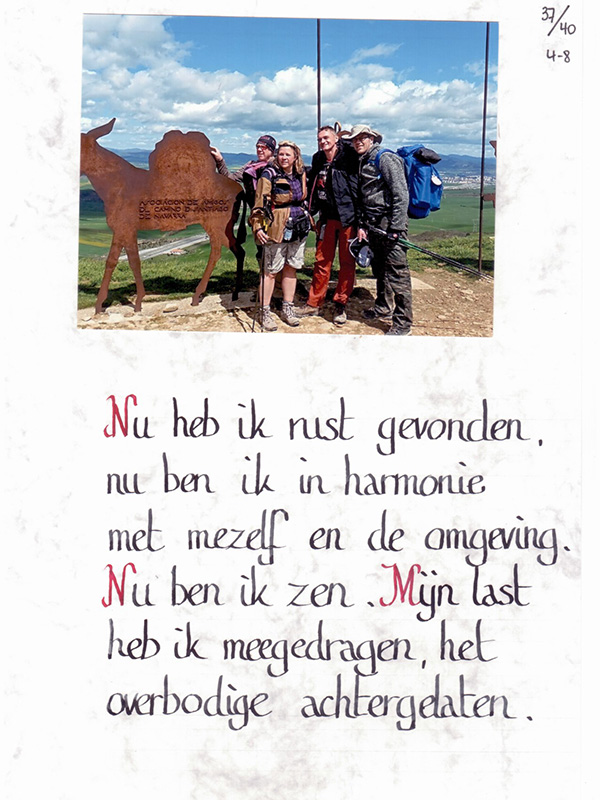 37/40
4-8
ASOCIACION DE AMIGOS
DEL CAMINO DE SANTIAGO
DE NAVARRA
Nu heb ik rust gevonden,
nu ben ik in harmonie
met mezelf en de omgeving.
Nu ben ik zen. Mijn last
heb ik meegedragen, het
overbodige achtergelaten.